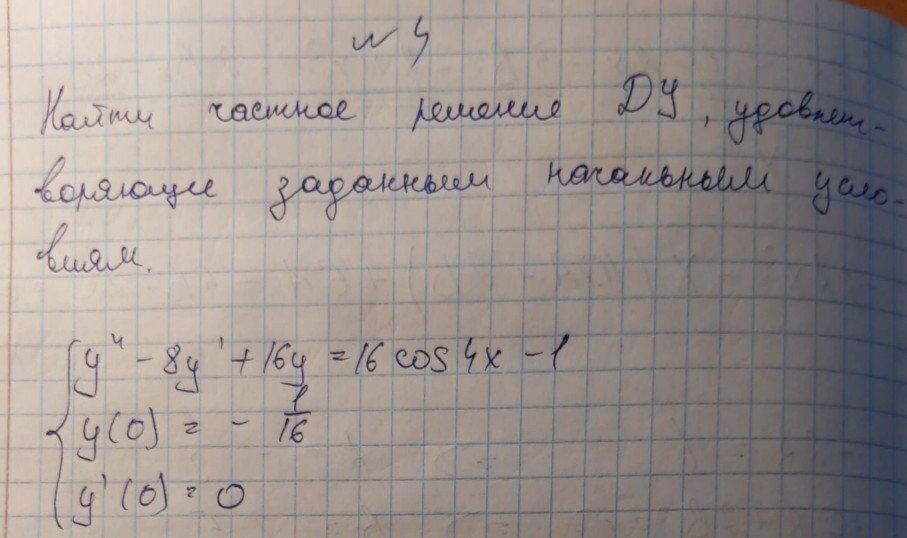 № 4
Найти частное решение ДУ, удовлет-
воряющие заданным начальным усло-
виям.
y'' - 8y' + 16y = 16 cos 4x - 1
y(0) = - 1/16
y'(0) = 0